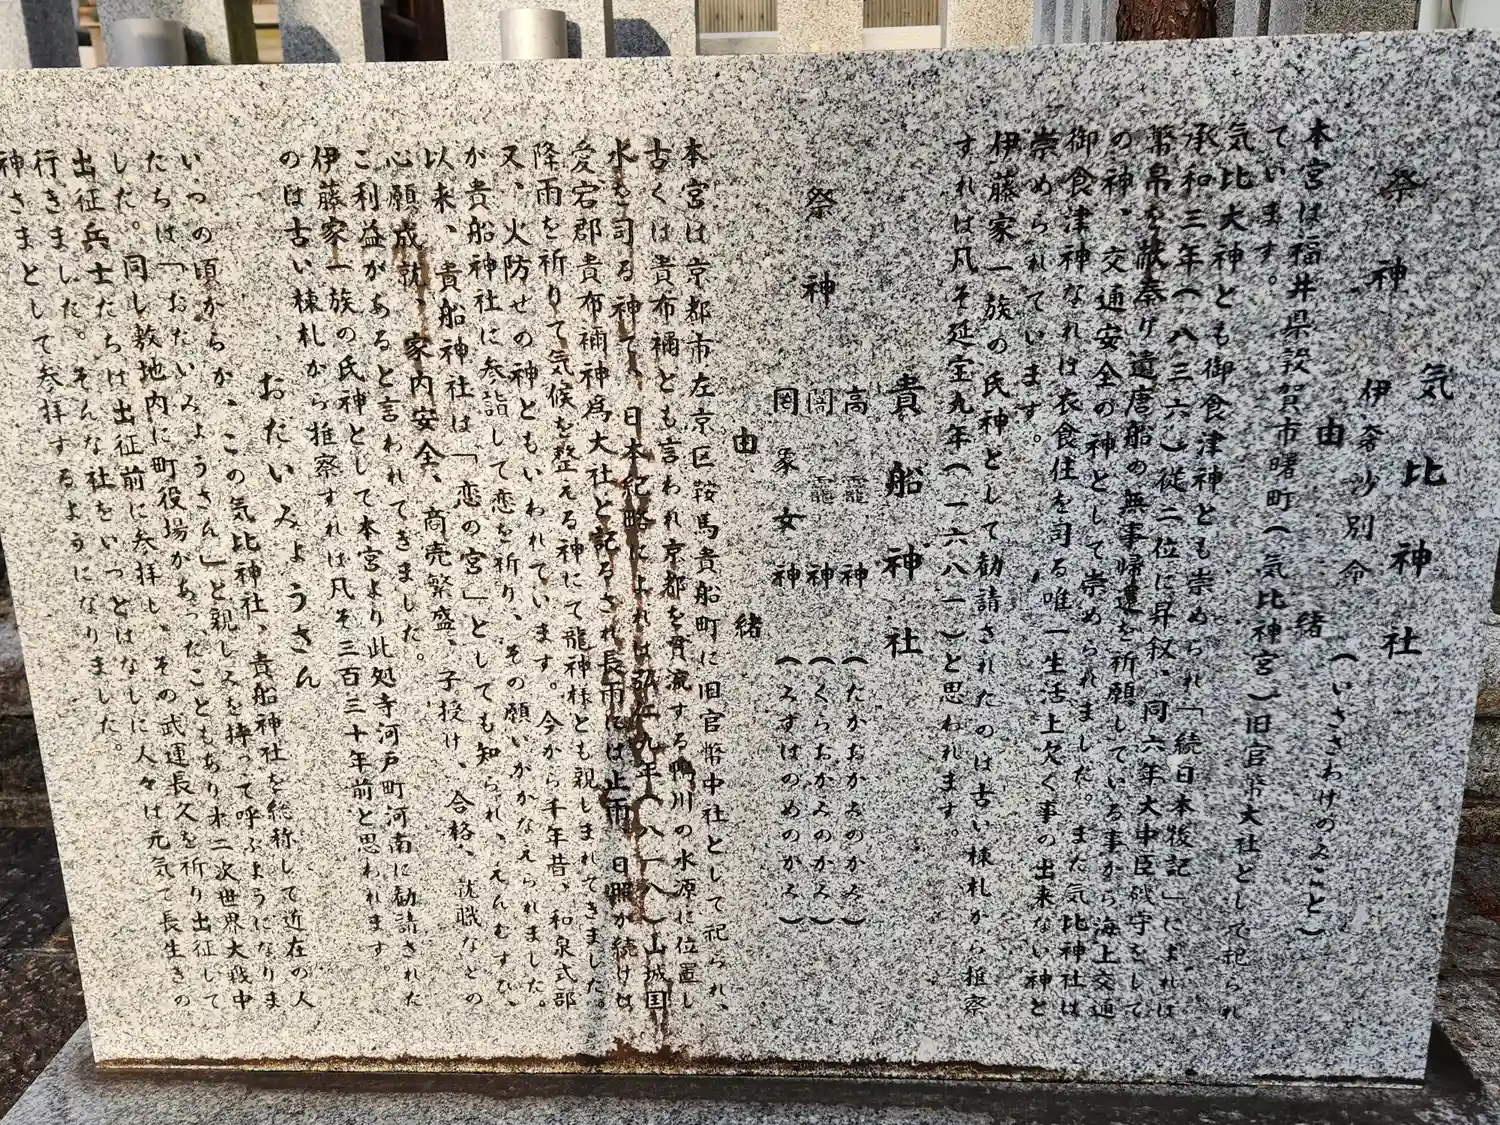 気比神社
祭神 伊奢沙別命(いざさわけのみこと)
由緒
本宮は福井県敦賀市曙町(気比神宮)旧官幣大社として祀られ
ています。
気比大神とも御食津神とも崇められ「続日本後記」によれば
承和三年(八三六)従二位に昇叙、同六年大中臣磯守をして
幣帛を献奉り遣唐船の無事帰還を祈願している事から海上交通
の神、交通安全の神として崇められました。また気比神社は
御食津神なれば衣食住を司る唯一生活上欠く事の出来ない神と
崇められています。
伊藤家一族の氏神として勧請されたのは古い棟札から推察
すれば凡そ延宝九年(一六八一)と思われます。
貴船神社
祭神 高龗神(たかおかみのかみ)
闇龗神(くらおかみのかみ)
罔象女神(みずはのめのかみ)
由緒
本宮は京都市左京区鞍馬貴船町に旧官幣中社として祀られ、
古くは貴布禰とも言われ京都を貫流する鴨川の水源に位置し
水を司る神で、日本紀略によれば弘仁九年(八一八)山城国
愛宕郡貴布禰神為大社と記るされ長雨には止雨、日照が続けば
降雨を祈りて気候を整える神にて龍神様とも親しまれてきました。
又、火防せの神ともいわれています。今から千年昔、和泉式部
が貴船神社に参詣して恋を祈り、その願いがかなえられました。
以来、貴船神社は「恋の宮」としても知られ、えんむすび、
心願成就、家内安全、商売繁盛、子授け、合格、就職などの
ご利益があると言われてきました。
伊藤家一族の氏神として本宮より此処寺河戸町河南に勧請された
のは古い棟札から推察すれば凡そ三百三十年前と思われます。
おたいみょうさん
いつの頃からか、この気比神社、貴船神社を総称して近在の人
たちは「おたいみょうさん」と親しみを持って呼ぶようになりま
した。同し敷地内に町役場があったこともあり第二次世界大戦中
出征兵士たちは出征前に参拝し、その武運長久を祈り出征して
行きました。そんな社をいつとはなしに人々は元気で長生きの
神さまとして参拝するようになりました。